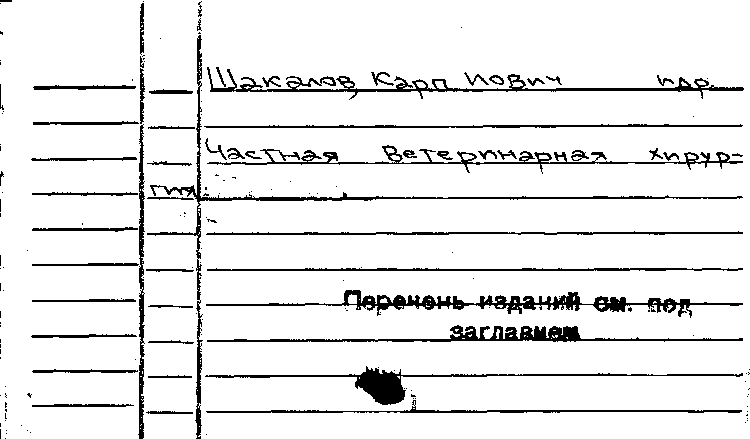 Шакалов, Карп Иович идр.
Частная Ветеринарная хирур=
гия.
Перечень изданий см. под
заглавием